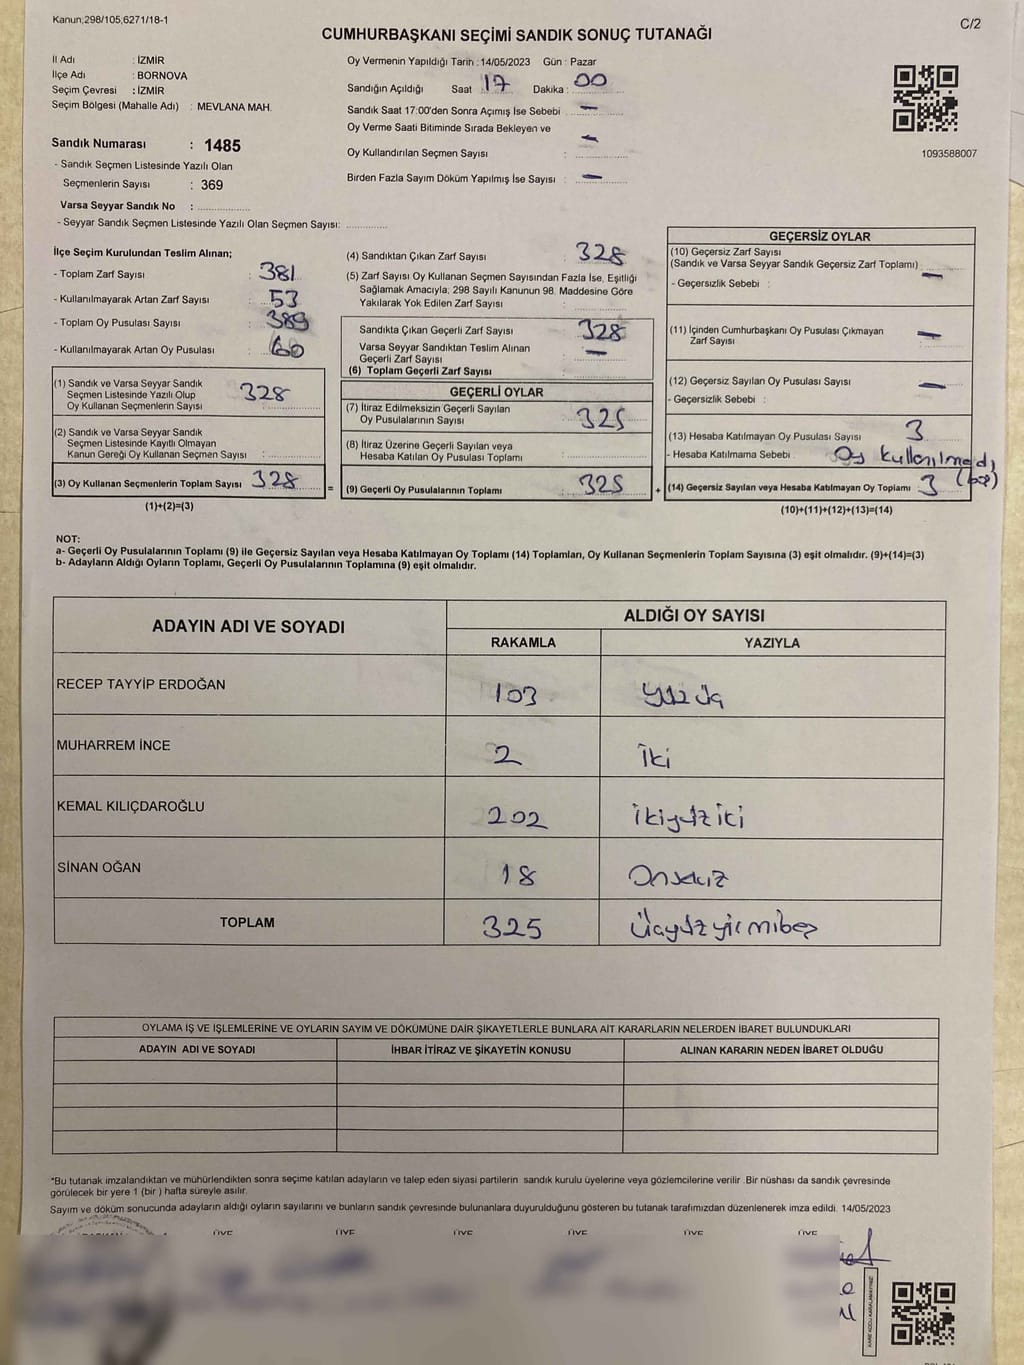 Kanun;298/105,6271/18-1
C/2
CUMHURBAŞKANI SEÇİMİ SANDIK SONUÇ TUTANAĞI
İl Adı : İZMİR
İlçe Adı : BORNOVA
Seçim Çevresi : İZMİR
Seçim Bölgesi (Mahalle Adı) : MEVLANA MAH.
Sandık Numarası : 1485
- Sandık Seçmen Listesinde Yazılı Olan
Seçmenlerin Sayısı : 369
Varsa Seyyar Sandık No :
- Seyyar Sandık Seçmen Listesinde Yazılı Olan Seçmen Sayısı:
Oy Vermenin Yapıldığı Tarih : 14/05/2023 Gün : Pazar
Sandığın Açıldığı Saat : 17 Dakika : 00
Sandık Saat 17:00'den Sonra Açımış İse Sebebi : —
Oy Verme Saati Bitiminde Sırada Bekleyen ve
Oy Kullandırılan Seçmen Sayısı : —
Birden Fazla Sayım Döküm Yapılmış İse Sayısı : —
1093588007
İlçe Seçim Kurulundan Teslim Alınan;
- Toplam Zarf Sayısı : 381
- Kullanılmayarak Artan Zarf Sayısı : 53
- Toplam Oy Pusulası Sayısı : 389
- Kullanılmayarak Artan Oy Pusulası : 60
(1) Sandık ve Varsa Seyyar Sandık
Seçmen Listesinde Yazılı Olup
Oy Kullanan Seçmenlerin Sayısı : 328
(2) Sandık ve Varsa Seyyar Sandık
Seçmen Listesinde Kayıtlı Olmayan
Kanun Gereği Oy Kullanan Seçmen Sayısı :
(3) Oy Kullanan Seçmenlerin Toplam Sayısı : 328
(1)+(2)=(3)
=
(4) Sandıktan Çıkan Zarf Sayısı : 328
(5) Zarf Sayısı Oy Kullanan Seçmen Sayısından Fazla İse, Eşitliği
Sağlamak Amacıyla; 298 Sayılı Kanunun 98. Maddesine Göre
Yakılarak Yok Edilen Zarf Sayısı :
Sandıkta Çıkan Geçerli Zarf Sayısı : 328
Varsa Seyyar Sandıktan Teslim Alınan —
Geçerli Zarf Sayısı
(6) Toplam Geçerli Zarf Sayısı
GEÇERLİ OYLAR
(7) İtiraz Edilmeksizin Geçerli Sayılan
Oy Pusulalarının Sayısı : 325
(8) İtiraz Üzerine Geçerli Sayılan veya
Hesaba Katılan Oy Pusulası Toplamı :
(9) Geçerli Oy Pusulalarının Toplamı : 325
+
GEÇERSİZ OYLAR
(10) Geçersiz Zarf Sayısı
(Sandık ve Varsa Seyyar Sandık Geçersiz Zarf Toplamı) : —
- Geçersizlik Sebebi :
(11) İçinden Cumhurbaşkanı Oy Pusulası Çıkmayan —
Zarf Sayısı
(12) Geçersiz Sayılan Oy Pusulası Sayısı : —
- Geçersizlik Sebebi :
(13) Hesaba Katılmayan Oy Pusulası Sayısı : 3
- Hesaba Katılmama Sebebi : Oy kullanılmadı
(boş)
(14) Geçersiz Sayılan veya Hesaba Katılmayan Oy Toplamı : 3
(10)+(11)+(12)+(13)=(14)
NOT:
a- Geçerli Oy Pusulalarının Toplamı (9) ile Geçersiz Sayılan veya Hesaba Katılmayan Oy Toplamı (14) Toplamları, Oy Kullanan Seçmenlerin Toplam Sayısına (3) eşit olmalıdır. (9)+(14)=(3)
b- Adayların Aldığı Oyların Toplamı, Geçerli Oy Pusulalarının Toplamına (9) eşit olmalıdır.
ADAYIN ADI VE SOYADI
ALDIĞI OY SAYISI
RAKAMLA YAZIYLA
RECEP TAYYİP ERDOĞAN 103 yüz üç
MUHARREM İNCE 2 iki
KEMAL KILIÇDAROĞLU 202 ikiyüziki
SİNAN OĞAN 18 onsekiz
TOPLAM 325 üçyüzyirmibeş
OYLAMA İŞ VE İŞLEMLERİNE VE OYLARIN SAYIM VE DÖKÜMÜNE DAİR ŞİKAYETLERLE BUNLARA AİT KARARLARIN NELERDEN İBARET BULUNDUKLARI
ADAYIN ADI VE SOYADI İHBAR İTİRAZ VE ŞİKAYETİN KONUSU ALINAN KARARIN NEDEN İBARET OLDUĞU
*Bu tutanak imzalandıktan ve mühürlendikten sonra seçime katılan adayların ve talep eden siyasi partilerin sandık kurulu üyelerine veya gözlemcilerine verilir .Bir nüshası da sandık çevresinde
görülecek bir yere 1 (bir ) hafta süreyle asılır.
Sayım ve döküm sonucunda adayların aldığı oyların sayılarını ve bunların sandık çevresinde bulunanlara duyurulduğunu gösteren bu tutanak tarafımızdan düzenlenerek imza edildi. 14/05/2023
ÜYE ÜYE ÜYE ÜYE ÜYE ÜYE